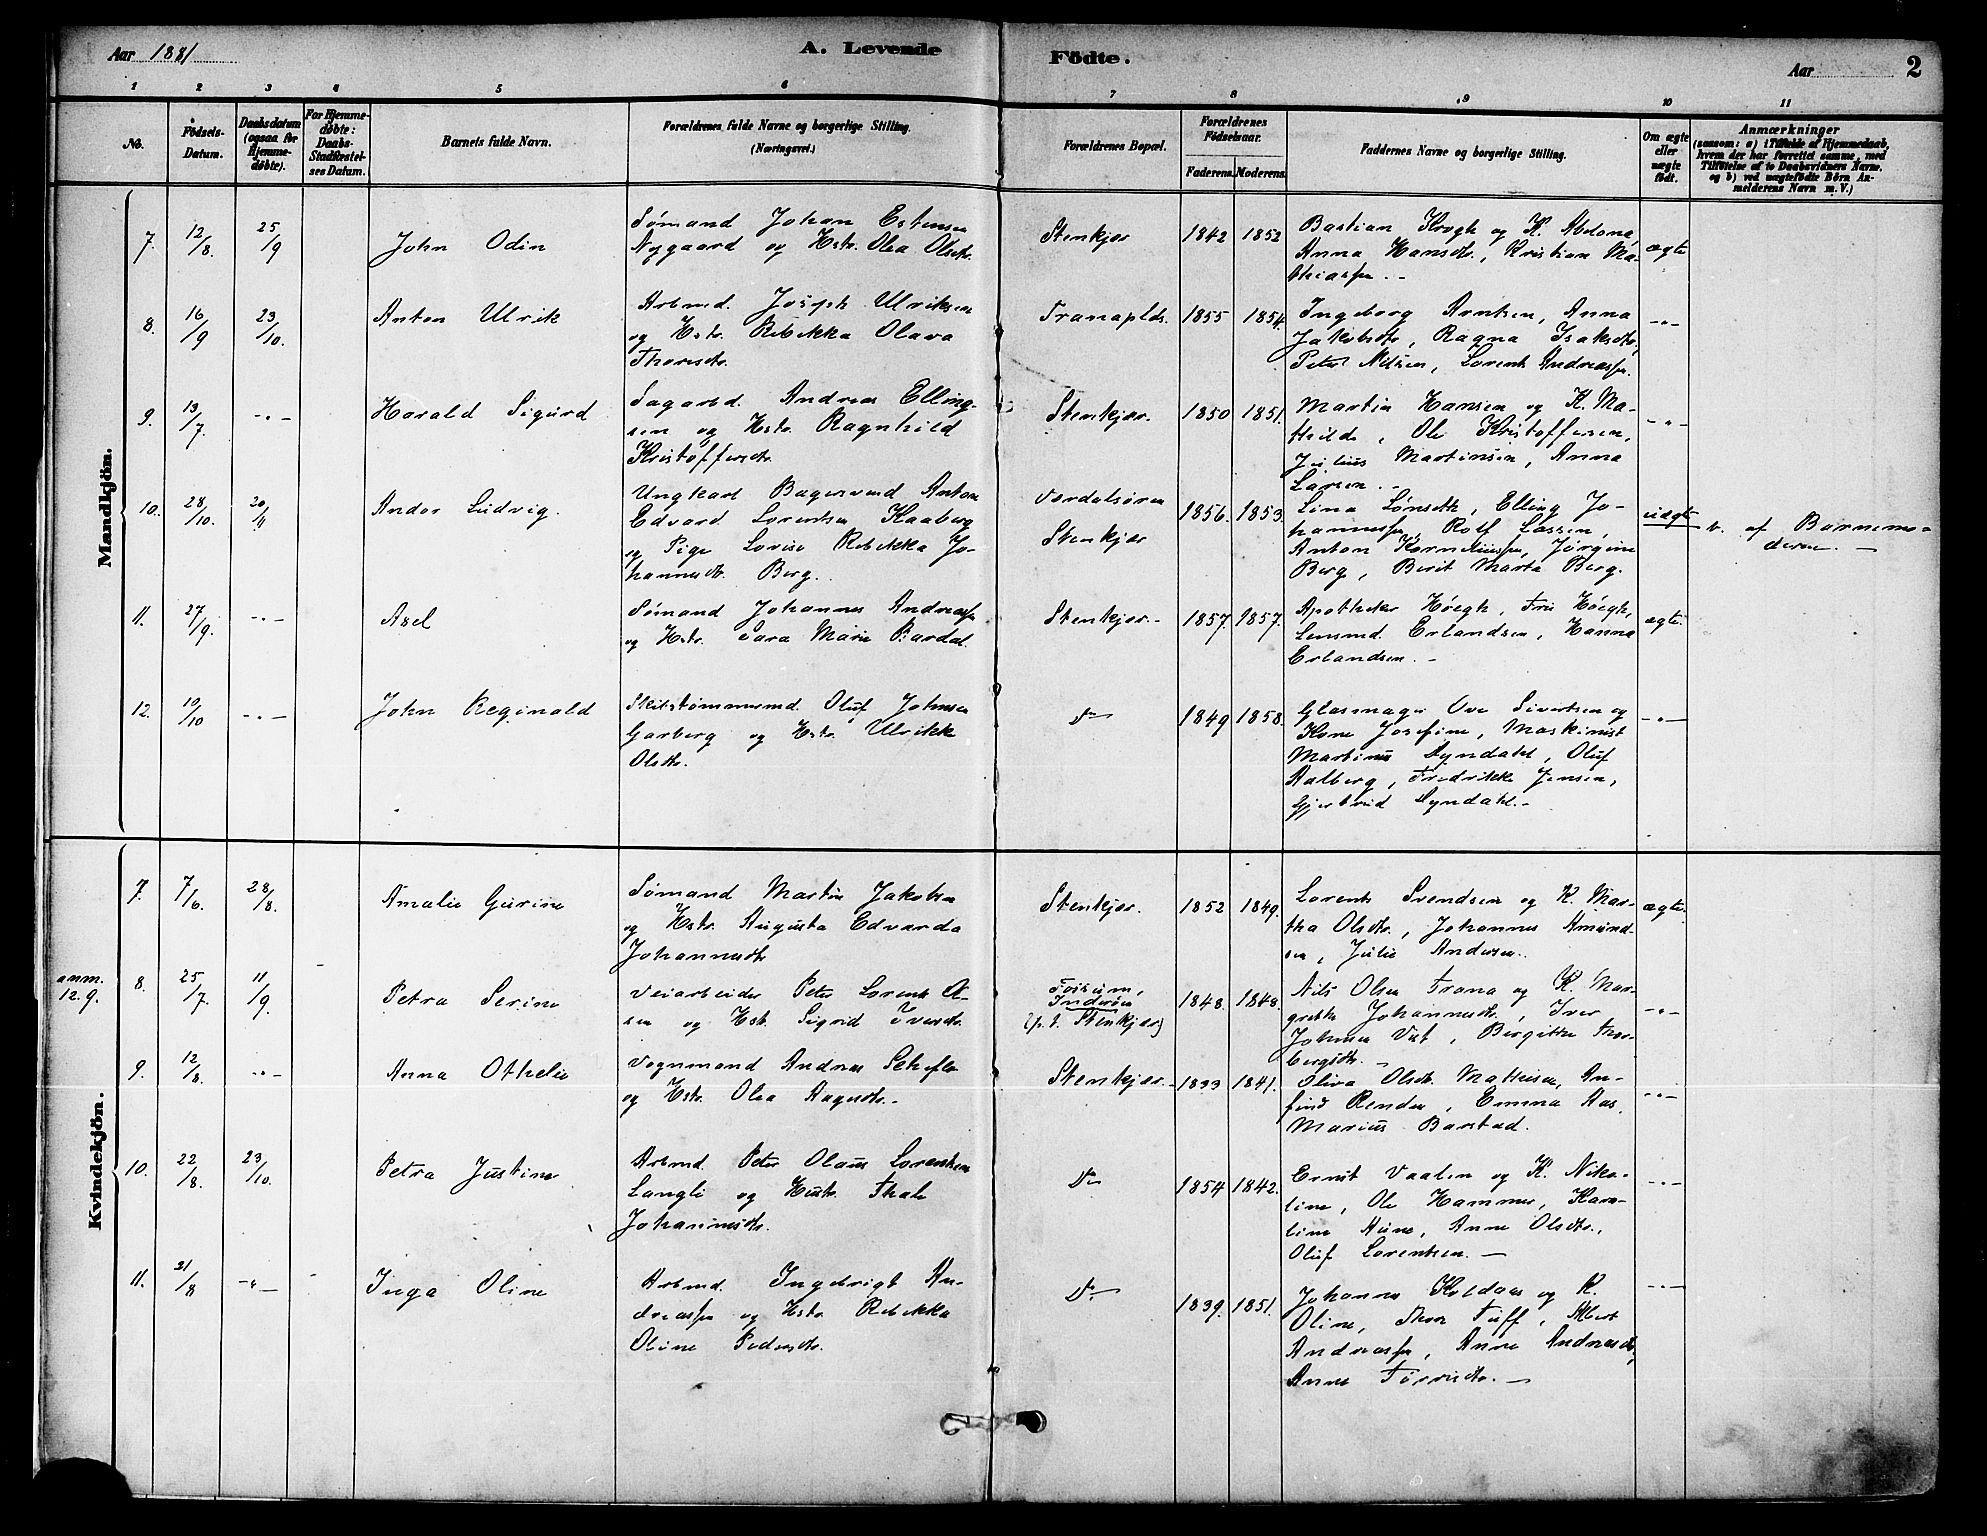 Aar 1881
A. Levende
Födte.
Aar
2
1 2 3 4 5 6 7 8 9 10 11
No.
Födsels-
Datum.
Daabsdatum
(ogsaa for
Hjemme-
døbte).
For Hjemme-
døbte:
Daabs-
Stadfæstel-
ses Datum.
Barnets fulde Navn.
Forældrenes fulde Navne og borgerlige Stilling.
(Næringsvei.)
Forældrenes Bopæl.
Forældrenes
Födselsaar.
Faderens. Moderens.
Faddernes Navne og borgerlige Stilling.
Om ægte
eller
uægte
födt.
Anmærkninger
(saasom: a) i Tilfælde af Hjemmedaab,
hvem der har forrettet samme, med
Tilføielse af to Daabsvidners Navne,
og b) ved uægtefødte Börn An-
melderens Navn m. V.)
Mandkjön.
7. 12/8. 25/9 John Odin
Sømand Johan Estensen
Nygaard og Hstr. Olea Olsdtr.
Stenkjær 1842 1852
Bastian Krogh og K. Abelona,
Anna Hansdtr., Kristian Ma-
thiassen. -
ægte
8. 16/9 23/10. Anton Ulrik
Arbmd. Joseph Ulriksen
og Hstr. Rebekka Olava
Thoresdtr.
Tranaplds. 1855 1854.
Ingeborg Arntsen, Anna
Jakobsdtr, Ragna Isaksdtr,
Peter Nilsen, Lorents Andreassen.
-"-
9. 13/7. -"- Harald Sigurd
Sagarbd. Andreas Elling-
sen og Hstr. Ragnhild
Kristoffersdtr.
Stenkjær. 1850 1851.
Martin Hansen og K. Ma-
thilde, Ole Kristoffersen,
Julius Martinsen, Anna
Larsen. -
-"-
10. 28/10. 20/11 Andor Ludvig.
Ungkarl Bagersvend Anton
Edvard Lorentsen Kaaberg
og Pige Lovise Rebekka Jo-
hannesdtr. Berg.
Værdalsøren
Stenkjær
1856. 1853.
Lina Lønseth, Elling Jo-
hannessen, Rolf Lassen,
Anton Korneliussen, Jørgine
Berg, Berit Marta Berg.
uægte
b. af Barnemo-
deren. -
11. 27/9. -"- Axel
Sømand Johannes Andreassen
og Hstr. Sara Marie Bardal.
Stenkjær. 1857. 1857.
Apotheker Høegh, Fru Høegh,
Lensmd. Erlandsen, Hanna
Erlandsen. -
ægte.
12. 10/10 -"- John Reginald
Skibstømmermd. Oluf Johnsen
Garberg og Hstr. Ulrikke
Olsdtr.
Do 1849 1858.
Glasmager Ove Sivertsen og
Kone Josefine, Maskinist
Martinus Lyndahl, Oluf
Aalberg, Fredrikke Jensen,
Gjertrud Lyndahl. -
-"-
Kvindekjön.
7. 7/6. 28/8. Amalie Gurine
Sømand Martin Jakobsen
og Hstr. Augusta Edvarda
Johannesdtr
Stenkjær. 1852 1849.
Lorents Svendsen og K. Mar-
tha Olsdtr., Johannes Amund-
sen, Julie Andersen.
ægte.
anm.
12.9.
8. 25/7. 11/9 Petra Serine
Veiarbeider Peter Lorents O-
sen og Hstr. Sigrid Iversdtr.
Fosnum,
Inderøen
(p. t. Stenkjær)
1848. 1848
Nils Olsen Trana og K. Mar-
grethe Johannesdtr., Iver
Johnsen Vist, Bergitte Thor-
bergsdtr. -
-"-
9. 12/8. -"- Anna Othelie
Vognmand Andreas Schefte
og Hstr. Olea Aagesdtr. -
Stenkjær. 1833 1841.
Oliva Olsdtr. Mathisen, An-
find Renden, Emma Aas,
Marius Barstad.
-"-
10. 22/8. 23/10. Petra Justine
Arbmd. Peter Olaus Lorentsen
Langli og Hustr. Thale
Johannesdtr.
Do 1854 1842.
Ernst Vaalen og K. Niko-
line, Ole Hammer, Karo-
line Aune, Anne Olsdtr.,
Oluf Lorentsen. -
-"-
11. 21/8 -"- Inga Oline
Arbmd. Ingebrigt An-
dreassen og Hstr. Rebekka
Oline Pedersdtr.
Do 1839. 1851.
Johannes Koldaas og K.
Oline, Thor Tuff, Albert
Andreassen, Anne Andreasdtr,
Anne Torrisdtr. -
-"-